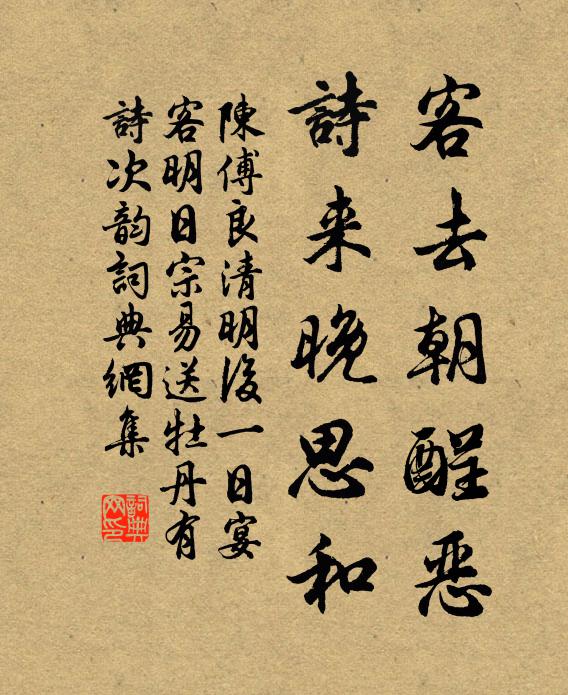 客去朝酲恶
詩来晚思和
陳傅良清明後一日宴
客明日宗易送牡丹有
詩次韵詞典網集
詞典网印